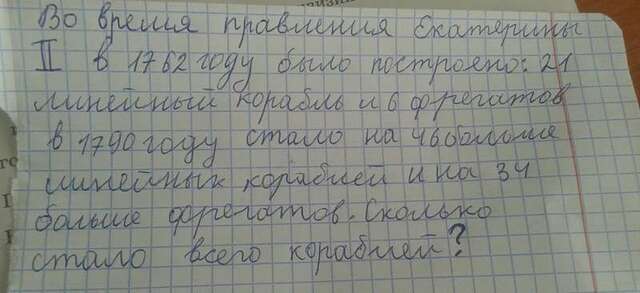 Во время правления Екатерины
II в 1762 году было построено: 21
линейный корабль и 6 фрегатов
в 1790 году стало на 46 больше
линейных кораблей и на 34
больше фрегатов. Сколько
стало всего кораблей?